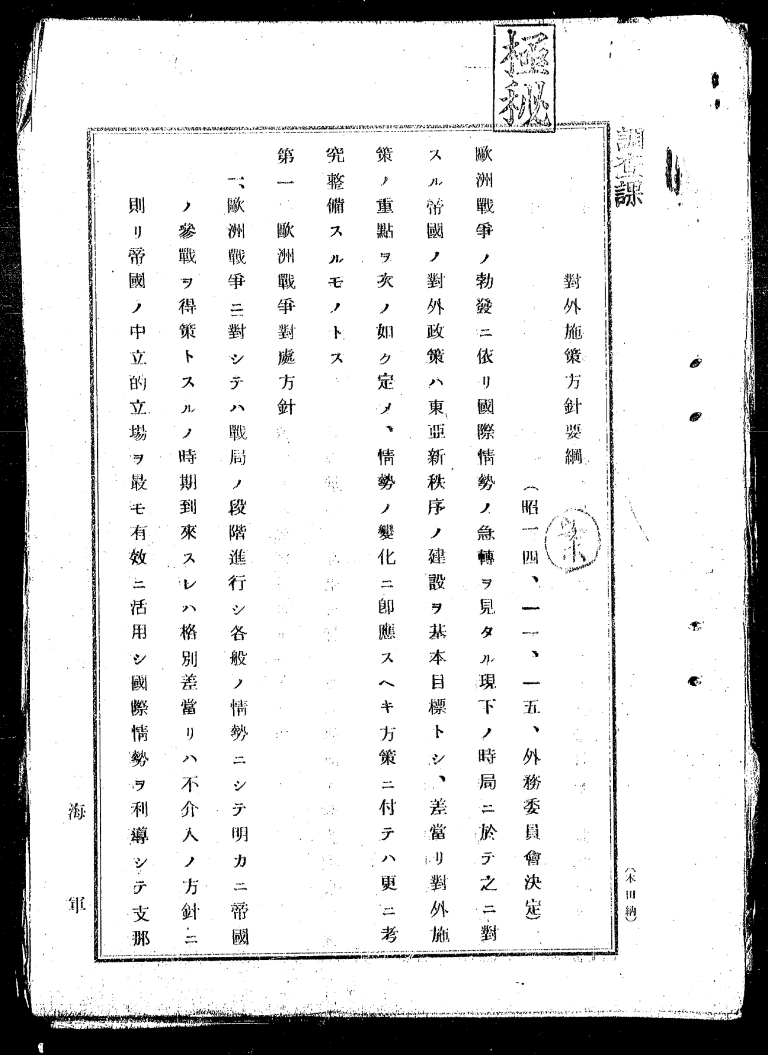 極秘
調査課
對外施策方針要綱
(昭一四、一一、一五、外務委員會決定)
案
歐洲戰爭ノ勃發ニ依リ國際情勢ノ急轉ヲ見タル現下ノ時局ニ於テ之ニ對
スル帝國ノ對外政策ハ東亞新秩序ノ建設ヲ基本目標トシ、差當リ對外施
策ノ重點ヲ次ノ如ク定メ、情勢ノ變化ニ卽應スヘキ方策ニ付テハ更ニ考
究整備スルモノトス
第一 歐洲戰爭對處方針
一、歐洲戰爭ニ對シテハ戰局ノ段階進行シ各般ノ情勢ニシテ明カニ帝國
ノ參戰ヲ得策トスルノ時期到來スレハ格別差當リハ不介入ノ方針ニ
則リ帝國ノ中立的立場ヲ最モ有效ニ活用シ國際情勢ヲ利導シテ支那
海軍